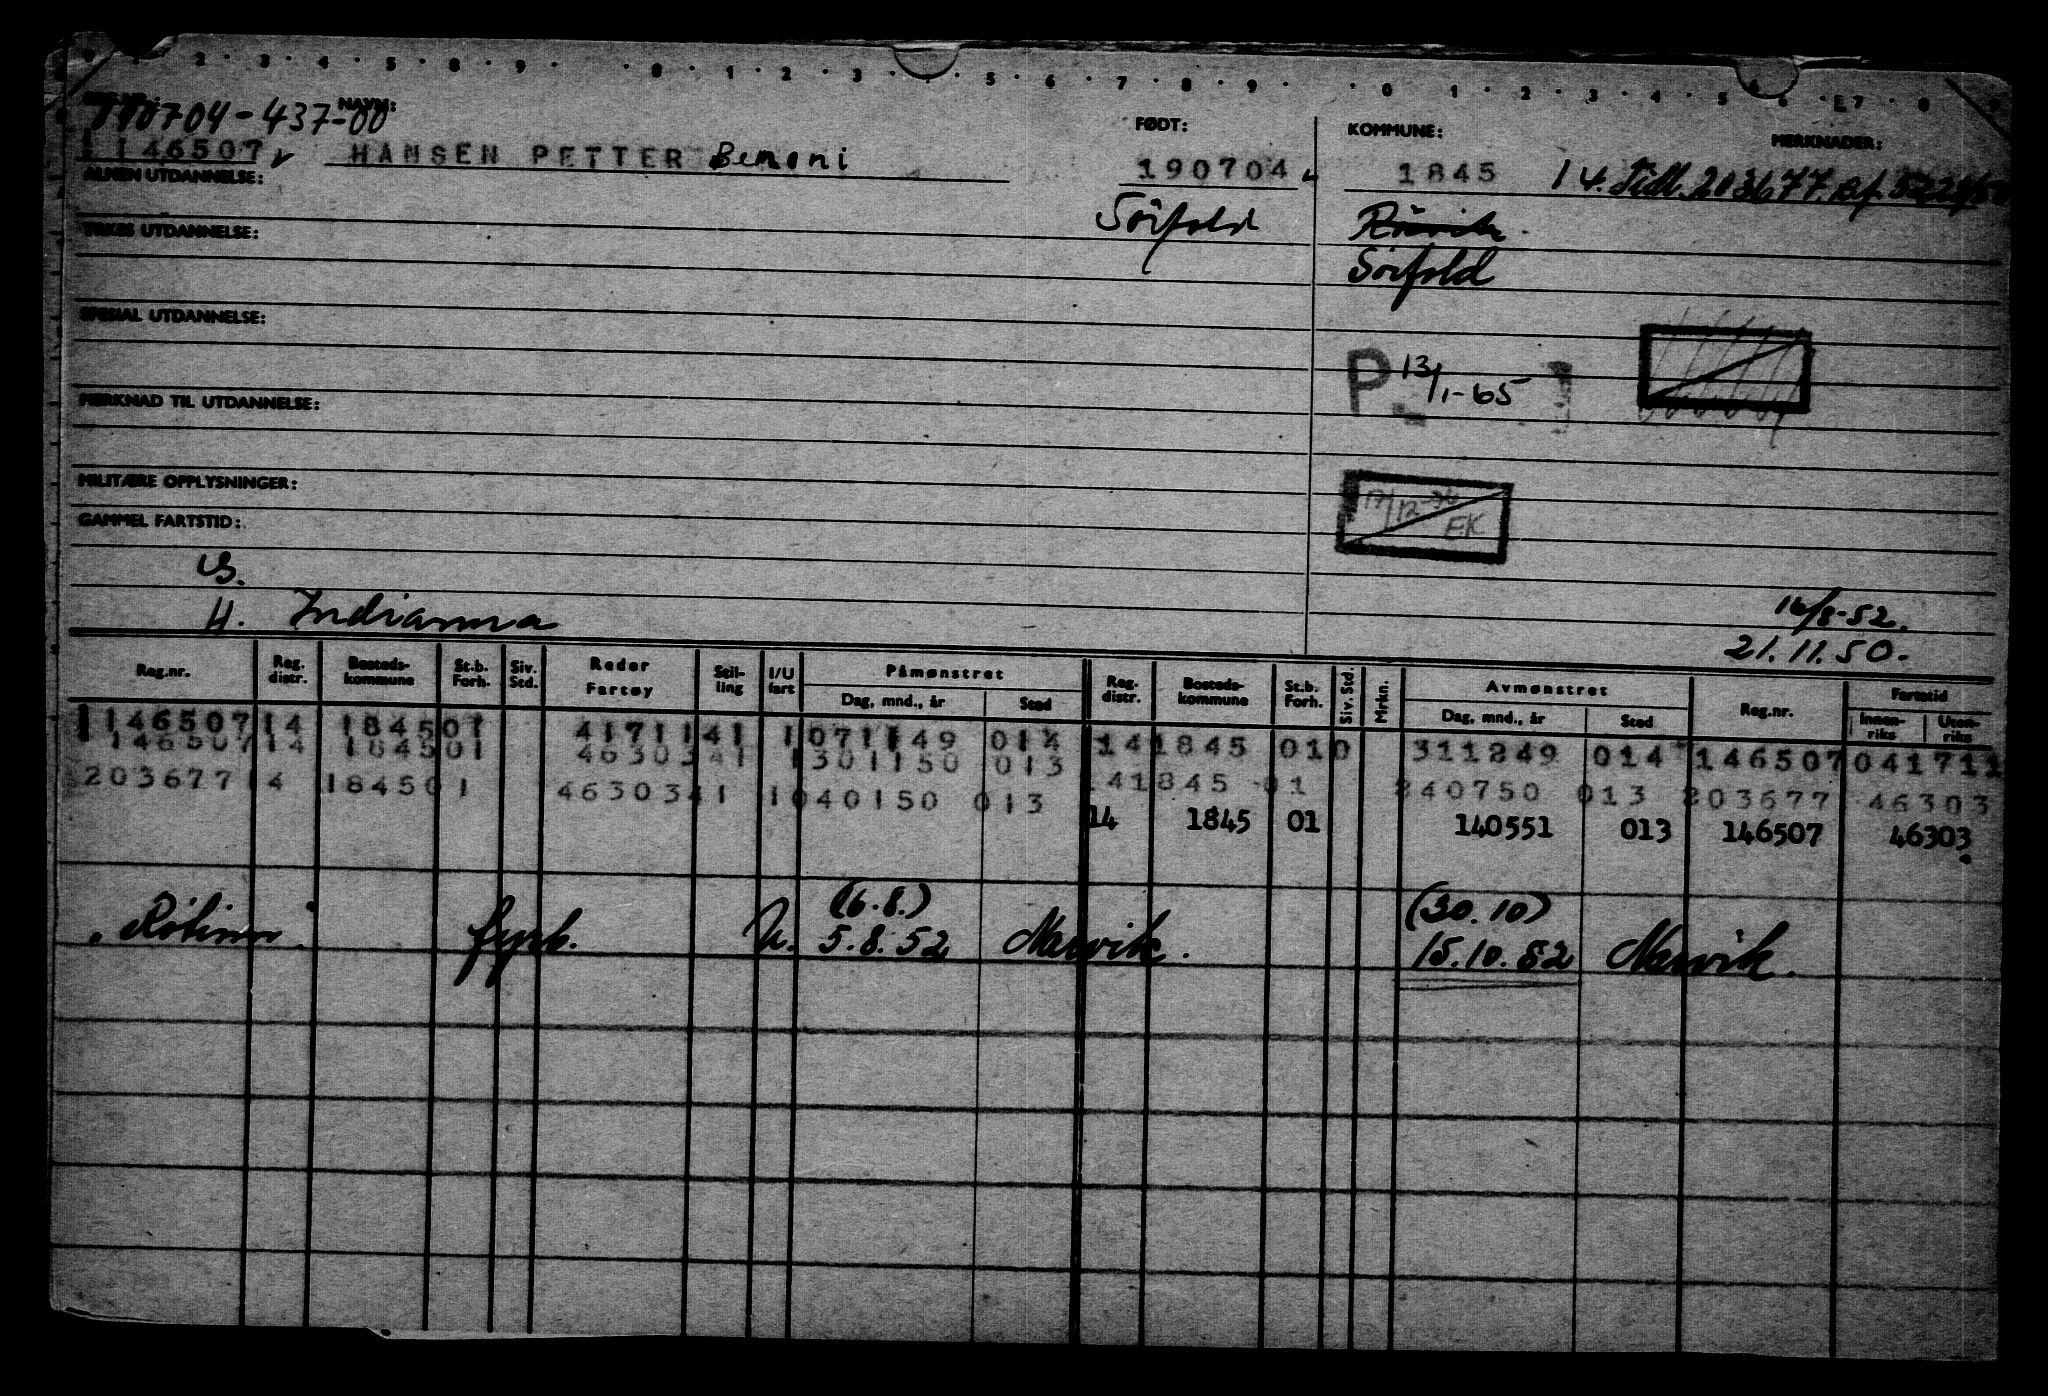 2 · 3 · 4 · 5 · 8 · 9 · · 0 · 1 · 2 · 3 · · 5 · 6 · 7 · 8 · 9 · · 0 · 1 · 2 · 3 · 4 · 5 · 6 · 7 · 8
190704-437-00 NAVN:
1146507 HANSEN PETTER Bemoni
FØDT:
190704
Sörfold
KOMMUNE:
1845
MERKNADER:
14. Tidl. 203677.
Rösvik
Sörfold
ALMEN UTDANNELSE:
YRKES UTDANNELSE:
SPESIAL UTDANNELSE:
MERKNAD TIL UTDANNELSE:
MILITÆRE OPPLYSNINGER:
GAMMEL FARTSTID:
P 13/1-65
17/12
EK
B.
H. Indianna
16/8-52.
21.11.50.
Reg.nr. Reg. distr. Bosteds-kommune St.b. Forh. Siv. Std. Reder Fartøy Stil-ling I/U fart Påmønstret Dag, mnd., år Sted Reg. distr. Bosteds-kommune St.b. Forh. Siv. Std. Mrkn. Avmønstret Dag, mnd., år Sted Reg.nr. Fartstid Innen-riks Uten-riks
1146507 14 184501 4171141 1 071149 014 141845 010 311249 014 146507 041711
146507 14 184501 4630341 1 301150 013
203677 14 184501 4630341 1 040150 013 141845 01 240750 013 203677 46303
14 1845 01 140551 013 146507 46303
(6.8.) (30.10)
fyrb. U. 5.8.52 Narvik. 15.10.52 Narvik.